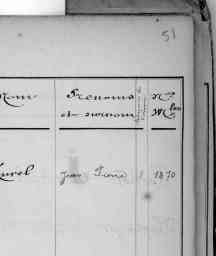 51
Nom
Prénoms
et surnoms
N°
Mle
Jean Pierre 1870